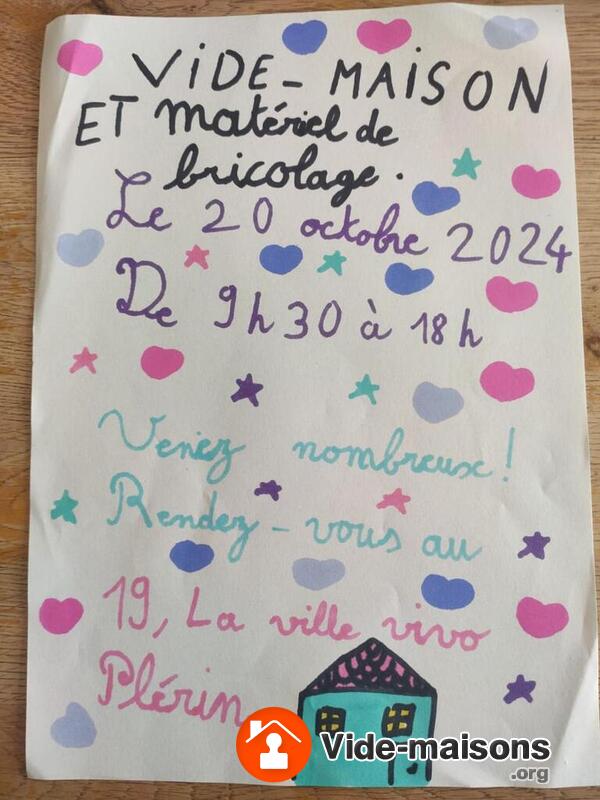 VIDE-MAISON
ET matériel de
bricolage.
Le 20 octobre 2024
De 9h30 à 18h
Venez nombreux!
Rendez-vous au
19, La ville vivo
Plérin
Vide-maisons
.org